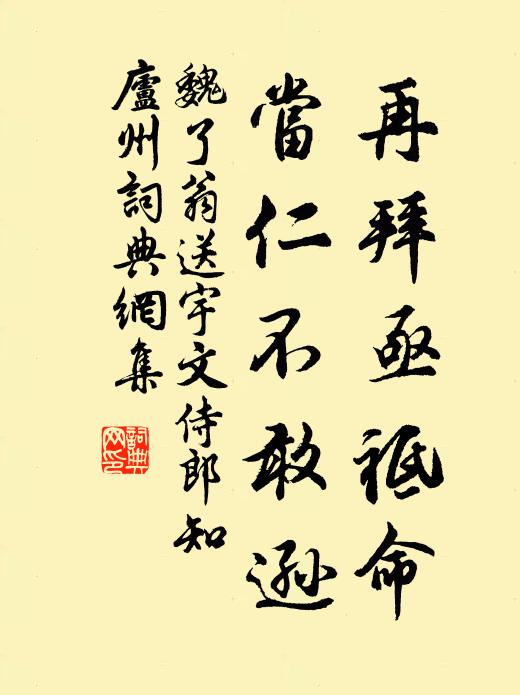 再拜亟祗命
當仁不敢遜
魏了翁送宇文侍郎知
廬州詞典網集
詞典
网印